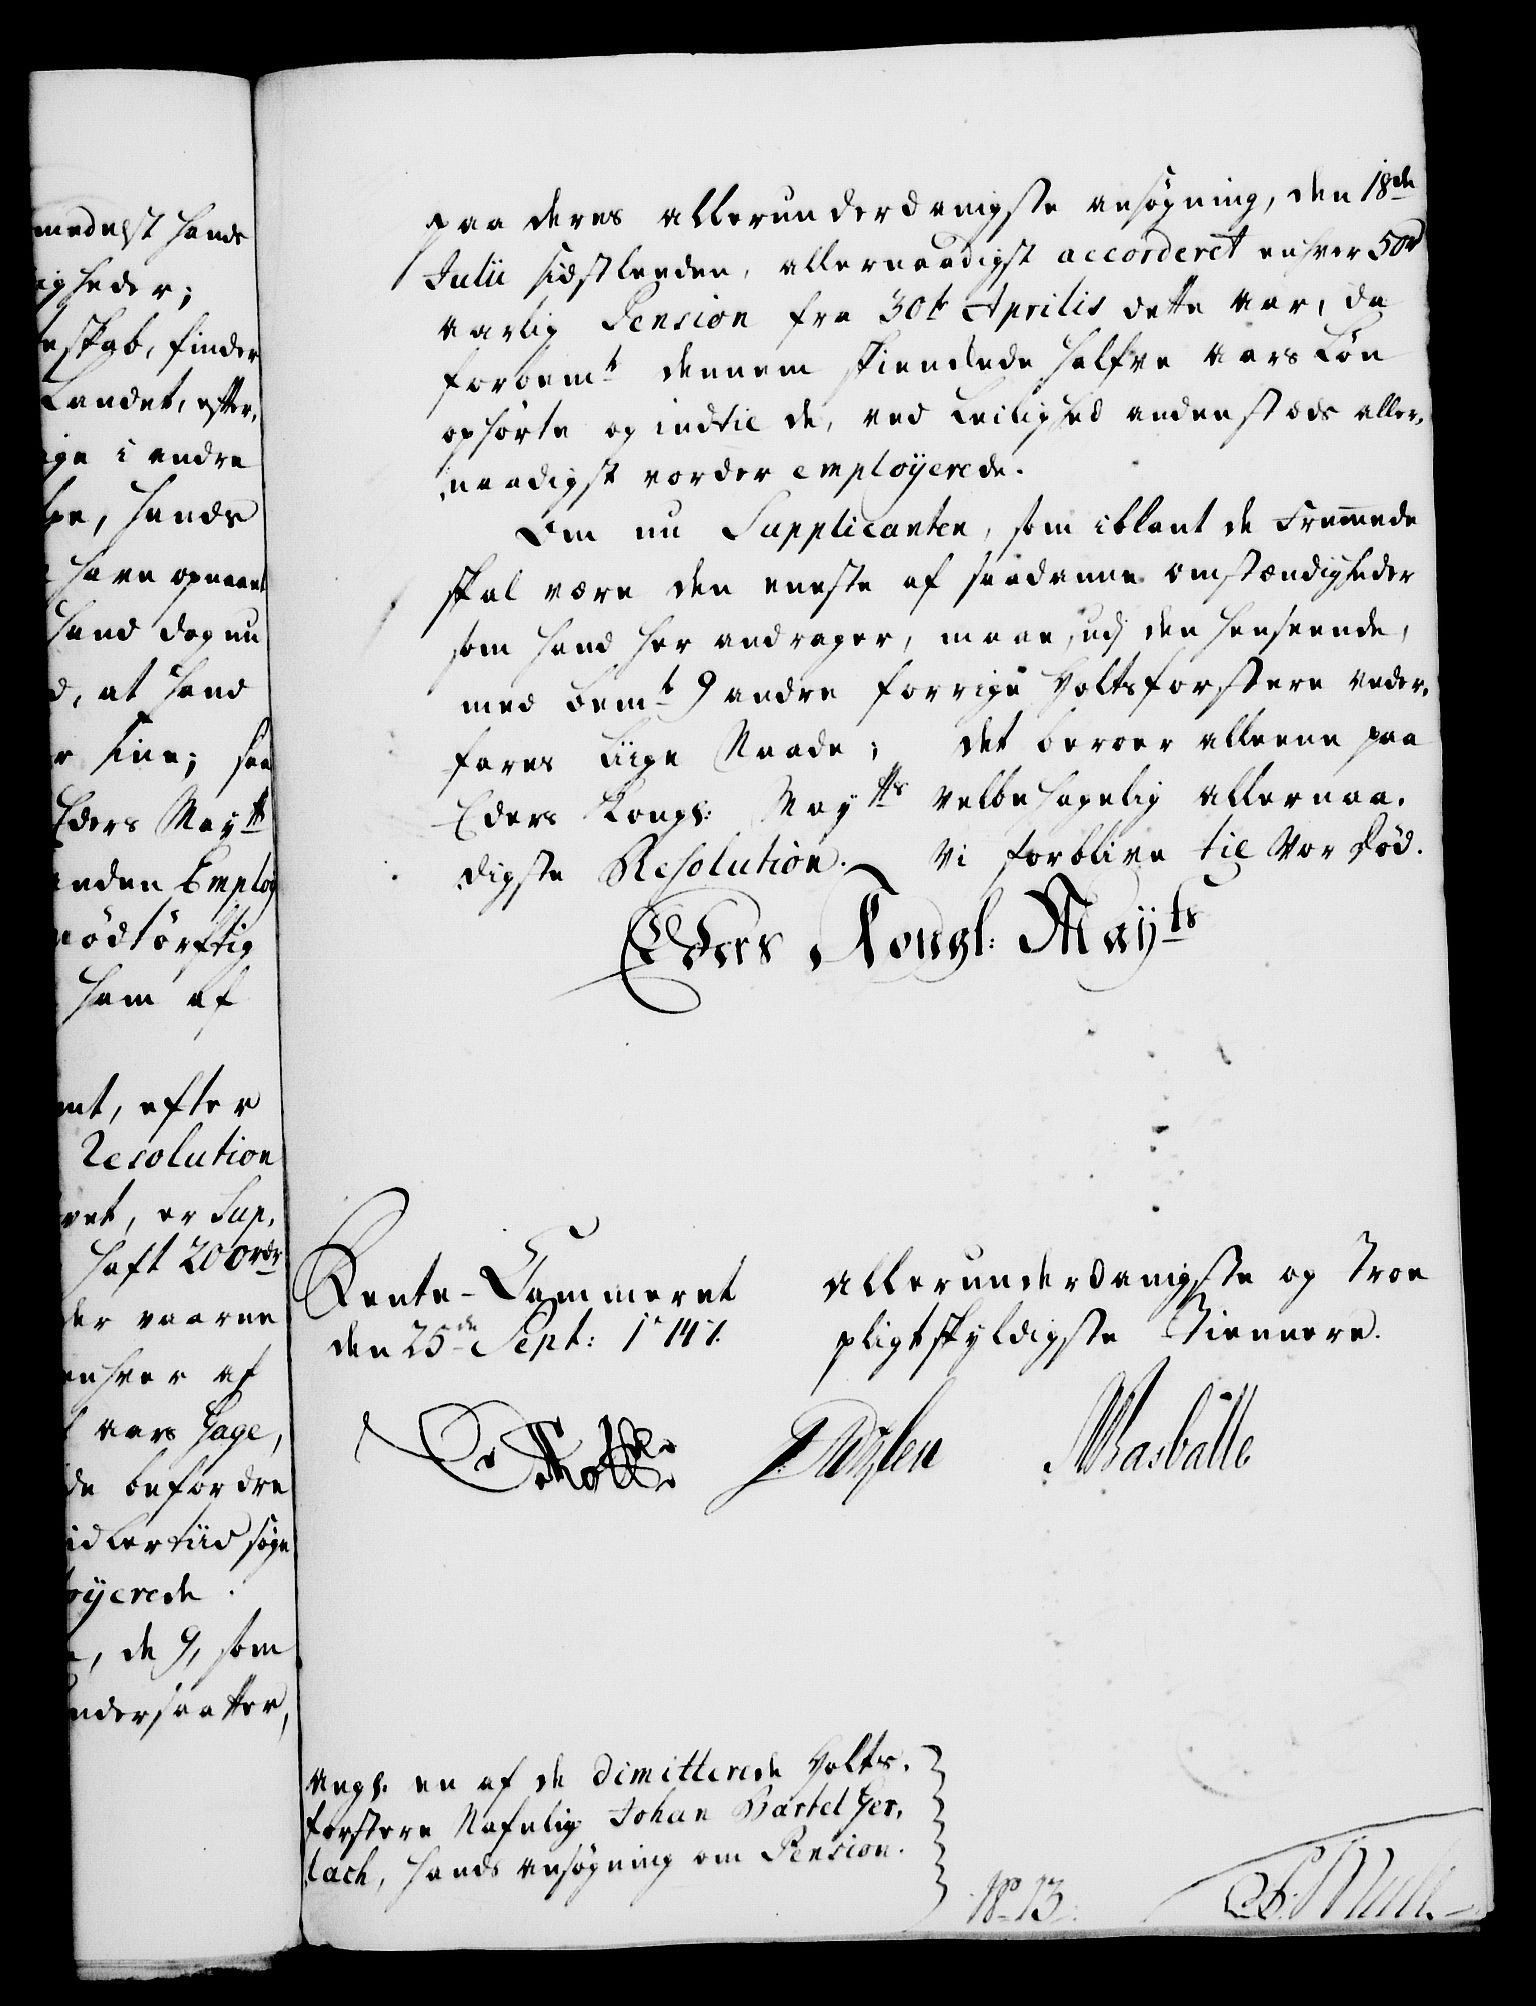 medelst hands
igheder;
eskab, finder
Landet, efter,
ige i andre
pe, hands
have opnaaet
hand dog nu
d, at hand
r sine; saa
Eders Maytt
anden Employ
nødtørftig
ham af
mt, efter
Resolution
vet, er Sup,
haft 200 rdr
der vaaren
enhver af
aars Gage,
de befordre
idlertiid søge
øyerede.
, de 9, som
ndersaatter,
paa deres allerunderdanigste ansøgning, den 18de
Julii sidstleeden, allernaadigst accorderet enhver 50rd
aarlig Pension fra 30te Aprilis dette aar, da
forbemt dennem skienckede halfve aars Løn
ophørte og indtil de, ved Leilighed andenstæds aller,
naadigst vorder employerede.
Om nu Supplicanten, som iblant de Fremmede
skal være den eneste af saadanne omstændigheder
som hand her andrager, maae, udj den henseende,
med bemte 9 andre forrige Holtsforstere veder,
fares Liige Naade; det beroer alleene paa
Eders Kongl: Maytts velbehagelig allernaa,
digste Resolution. Vi forblive til vor død.
Eders Kongl: Mayts
Rente-Cammeret
den 25de Sept: 1747.
allerunderdanigste og Troe
pligtskyldigste Tiennere.
Ang: en af de dimitterede Holts,
forstere Nafnlig Johan Bartel Ger,
lach, hands ansøgning om Pension.
No 13.